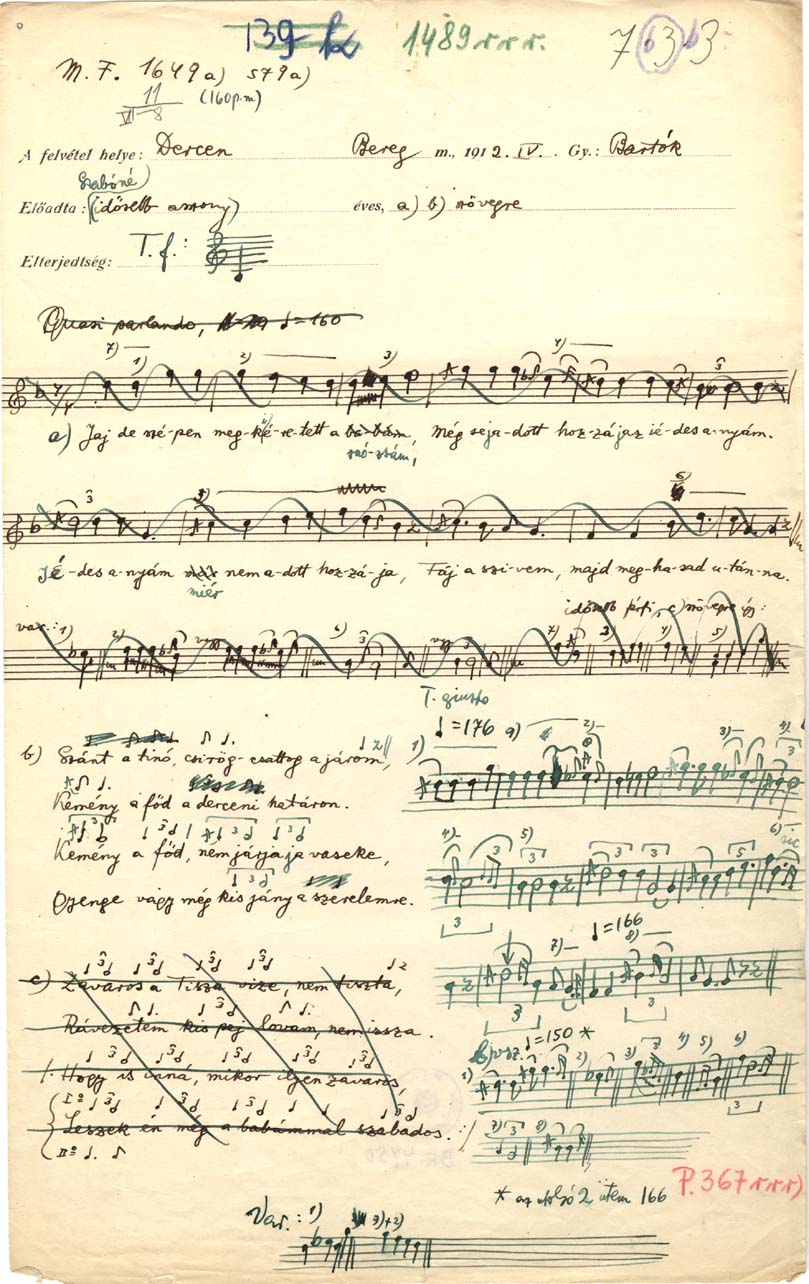 139 1489 r.r.r. 7633
M. F. 1649a) 579a)
11
VI-8 (160p.m.)
A felvétel helye: Dercen Bereg m., 1912. IV. Gy.: Bartók
Szabóné
Előadta: (idősebb asszony) éves, a) b) szövegre
Elterjedtség: T. f.:
Quasi parlando, ♩=160
7) 1) 2) 3) 4) 3
a) Jaj de szé-pen meg-ké-re-tett a ba-bám, Még se ja-dott hoz-zá jaz ié-des a-nyám.
szó-szám,
3 6)
JÉ-des a-nyám nem a-dott hoz-zá-ja, Fáj a szi-vem, majd meg-ha-sad u-tán-na.
miér
idősebb férfi, c) szövegre így:
var.: 1) 2) 3 7) 4) 5)
T. giusto
♩=176 a) 2) 3) 4)
b) Szánt a tinó, csirög-csattog a járom, 1)
Kemény a főd a derceni határon.
Kemény a főd, nem járja ja vaseke, 4) 3 5) 3 3 3 5 6) sic
Gyenge vagy még kis jány a szerelemre.
3
♩=166
7) 8)
c) Zavaros a Tisza vize, nem tiszta,
3 3
Rávezetem kis pej lovam, nem issza.
b) vsz. ♩=150 *
Hogy is inná, mikor ilyen zavaros, 1) 2) 3) 4) 5) 6)
Iº
Leszek én még a babámmal szabados.
IIº
7) 3 8)
* az utolsó 2 ütem 166 P. 367 r.r.r)
Var.: 1) 3)+2)